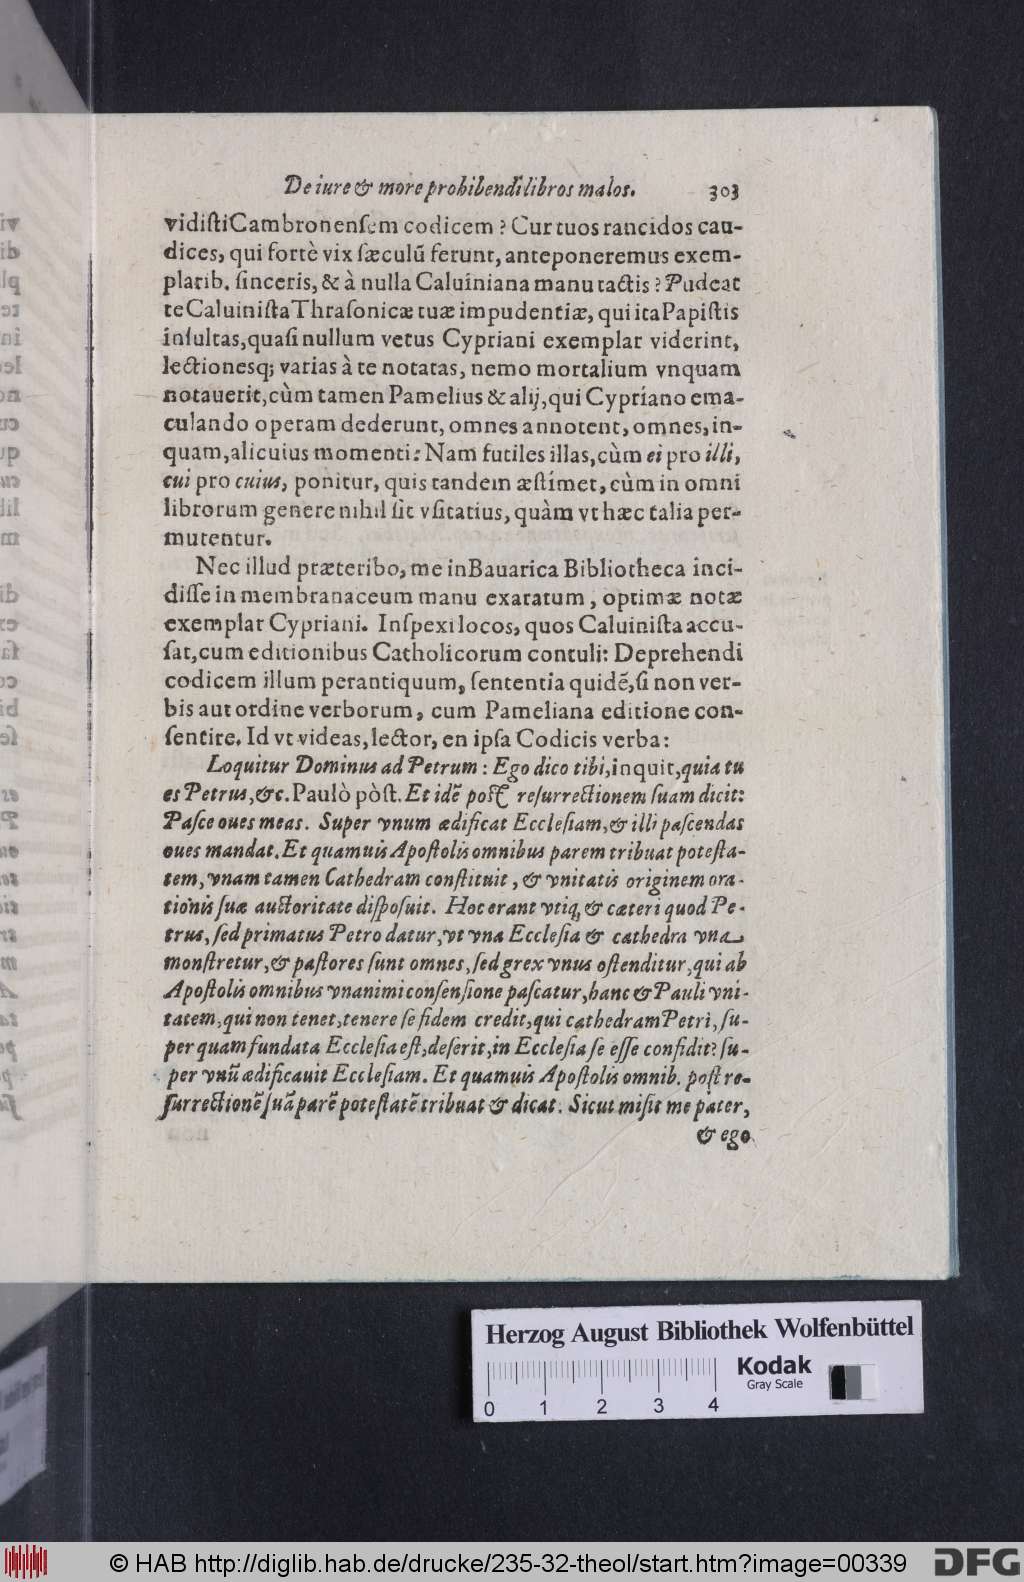 De iure & more prohibendi libros malos. 303
vidiſti Cambronenſem codicem? Cur tuos rancidos cau-
dices, qui fortè vix ſæculũ ferunt, anteponeremus exem-
plarib. ſinceris, & à nulla Caluiniana manu tactis? Pudeat
te Caluiniſta Thraſonicæ tuæ impudentiæ, qui ita Papiſtis
inſultas, quaſi nullum vetus Cypriani exemplar viderint,
lectionesq; varias à te notatas, nemo mortalium vnquam
notauerit, cùm tamen Pamelius & alij, qui Cypriano ema-
culando operam dederunt, omnes annotent, omnes, in-
quam, alicuius momenti: Nam futiles illas, cùm ei pro illi,
cui pro cuius, ponitur, quis tandem æſtimet, cùm in omni
librorum genere nihil ſit vſitatius, quàm vt hæc talia per-
mutentur.
Nec illud præteribo, me in Bauarica Bibliotheca inci-
diſſe in membranaceum manu exaratum, optimæ notæ
exemplar Cypriani. Inſpexi locos, quos Caluiniſta accu-
ſat, cum editionibus Catholicorum contuli: Deprehendi
codicem illum perantiquum, ſententia quidẽ, ſi non ver-
bis aut ordine verborum, cum Pameliana editione con-
ſentire. Id vt videas, lector, en ipſa Codicis verba:
Loquitur Dominus ad Petrum: Ego dico tibi, inquit, quia tu
es Petrus, &c. Paulò pòſt. Et idẽ poſt reſurrectionem ſuam dicit:
Paſce oues meas. Super vnum ædificat Eccleſiam, & illi paſcendas
oues mandat. Et quamuis Apoſtolis omnibus parem tribuat poteſta-
tem, vnam tamen Cathedram conſtituit, & vnitatis originem ora-
tionis ſuæ auctoritate diſpoſuit. Hoc erant vtiq; & cæteri quod Pe-
trus, ſed primatus Petro datur, vt vna Eccleſia & cathedra vna
monſtretur, & paſtores ſunt omnes, ſed grex vnus oſtenditur, qui ab
Apoſtolis omnibus vnanimi conſenſione paſcatur, hanc & Pauli vni-
tatem, qui non tenet, tenere ſe fidem credit, qui cathedram Petri, ſu-
per quam fundata Eccleſia eſt, deſerit, in Eccleſia ſe eſſe confidit? ſu-
per vnũ ædificauit Eccleſiam. Et quamuis Apoſtolis omnib. poſt re-
ſurrectionẽ ſuã parẽ poteſtatẽ tribuat & dicat. Sicut miſit me pater,
& ego
Herzog August Bibliothek Wolfenbüttel
Kodak
Gray Scale
0 1 2 3 4
© HAB http://diglib.hab.de/drucke/235-32-theol/start.htm?image=00339
DFG